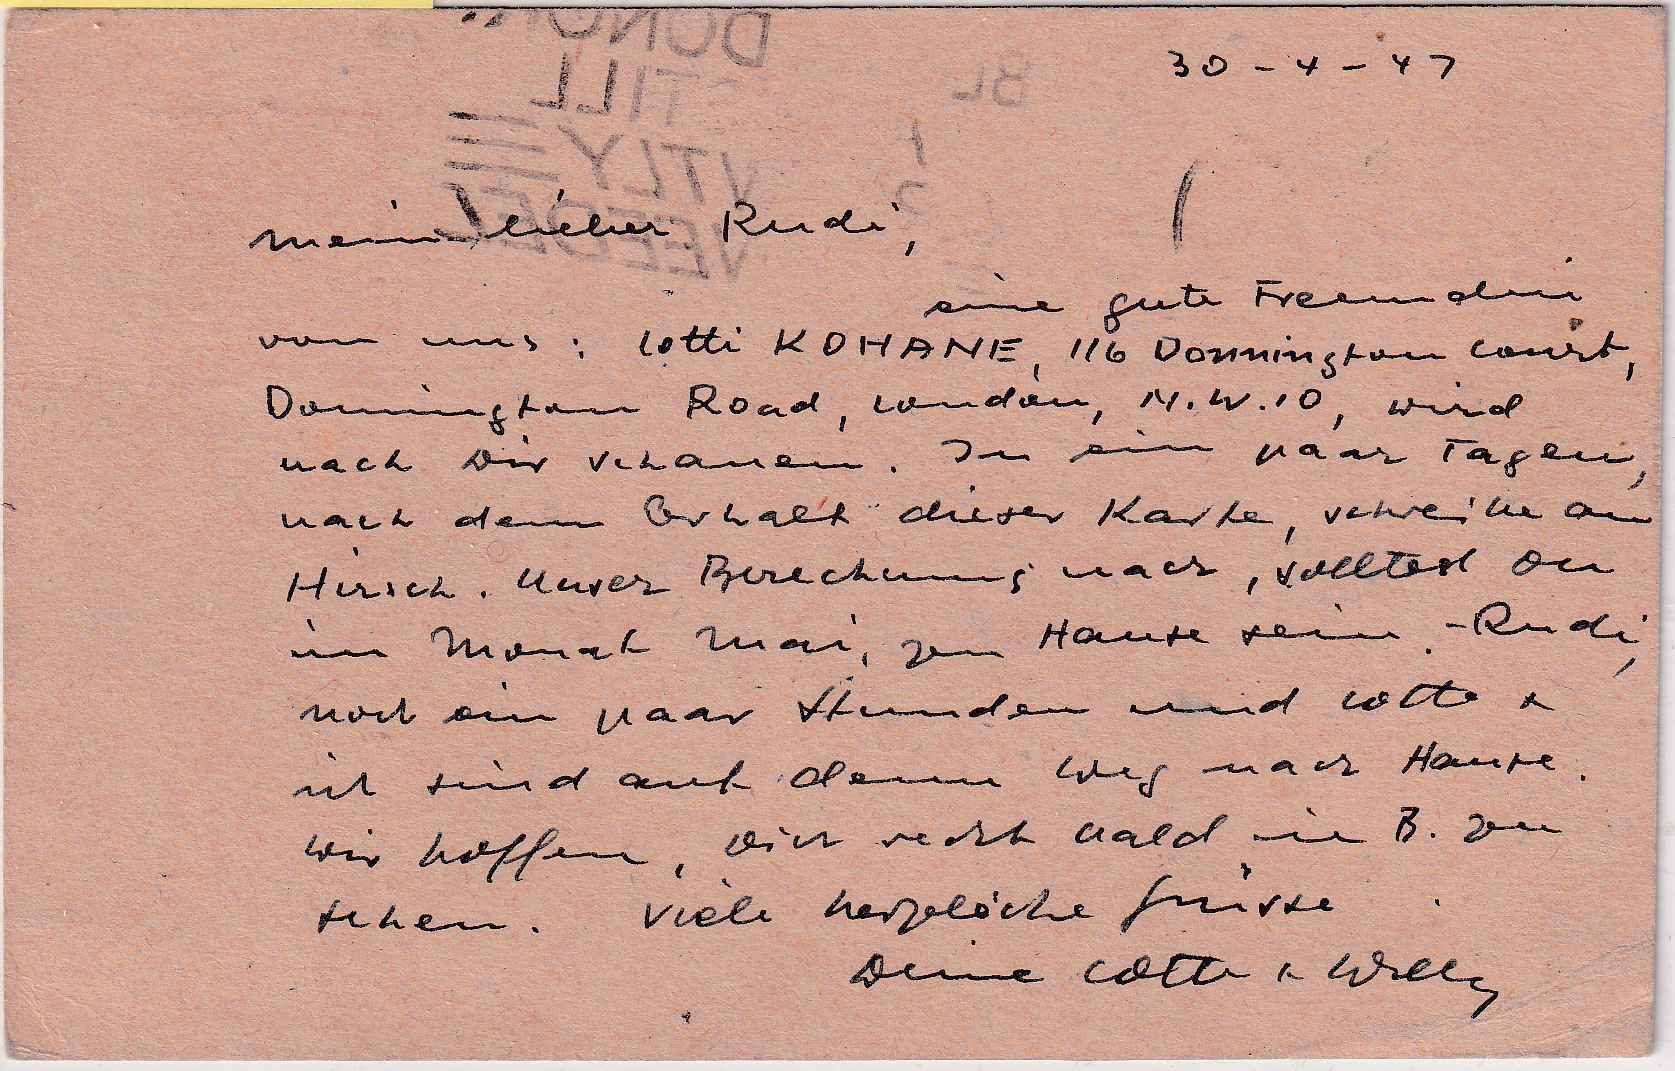 DONOR..
STILL
NTLY
NEEDED
BL
30-4-47
Mein lieber Rudi,
eine gute Freundin
von uns: Lotti KOHANE, 116 Donnington Court,
Donnington Road, London, N.W.10, wird
nach Dir schauen. In ein paar Tagen,
nach dem Erhalt dieser Karte, schreibe an
Hirsch. Unser Berechnung nach, solltest Du
im Monat Mai, zu Hause sein. - Rudi,
noch ein paar Stunden und Lotte &
ich sind auf dem Weg nach Hause.
Wir hoffen, Dich recht bald in B. zu
sehen. Viele herzliche Grüsse
Deine Lotte & Willy